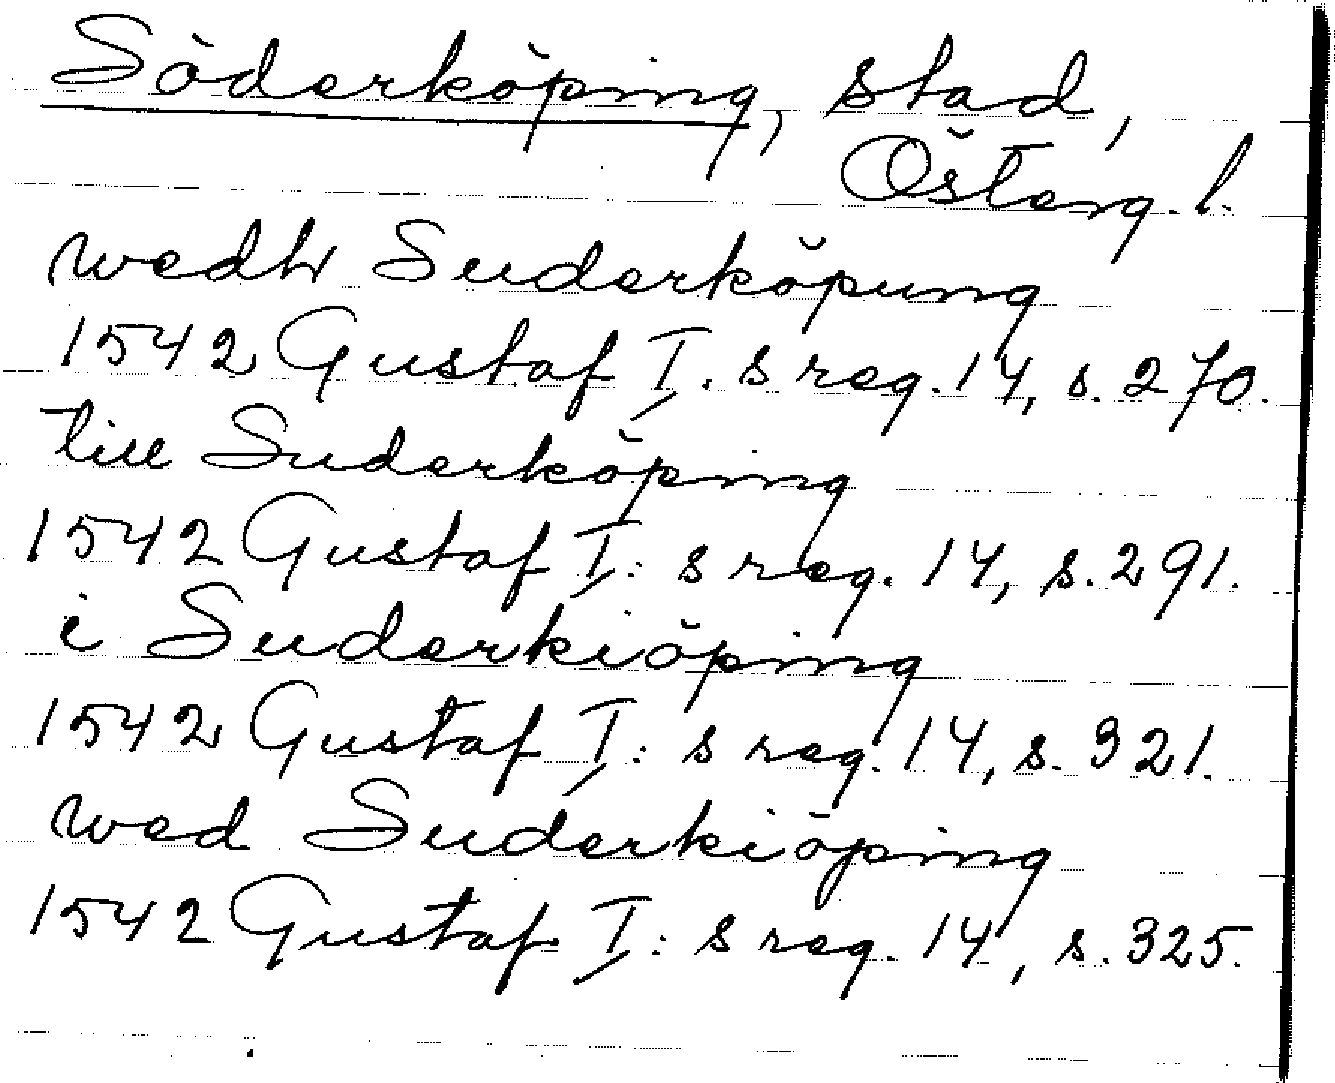 Söderköping, stad,
Österg. l.
wedh Suderköpung
1542 Gustaf I. s reg. 14, s. 270.
till Suderköping
1542 Gustaf I: s reg. 14, s. 291.
i Suderkiöping
1542 Gustaf I: s reg. 14, s. 321.
wed Suderkiöping
1542 Gustaf I: s reg. 14, s. 325.